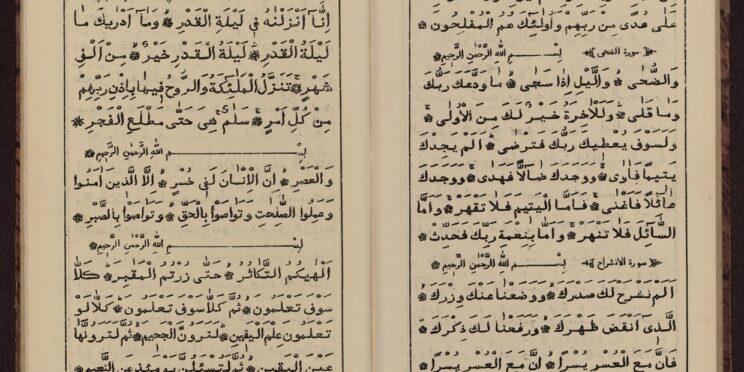 عَلٰى هُدًى مِنْ رَبِّهِمْ وَاُولٰٓئِكَ هُمُ الْمُفْلِحُونَ
سورة الضحى بِسْمِ اللّٰهِ الرَّحْمٰنِ الرَّحِيمِ
وَالضُّحٰى وَالَّيْلِ اِذَا سَجٰى مَا وَدَّعَكَ رَبُّكَ
وَمَا قَلٰى وَلَلْاٰخِرَةُ خَيْرٌ لَكَ مِنَ الْاُولٰى
وَلَسَوْفَ يُعْطِيكَ رَبُّكَ فَتَرْضٰى اَلَمْ يَجِدْكَ
يَتِيمًا فَاٰوٰى وَوَجَدَكَ ضَالًّا فَهَدٰى وَوَجَدَكَ
عَائِلًا فَاَغْنٰى فَاَمَّا الْيَتِيمَ فَلَا تَقْهَرْ وَاَمَّا
السَّائِلَ فَلَا تَنْهَرْ وَاَمَّا بِنِعْمَةِ رَبِّكَ فَحَدِّثْ
سورة الانشراح بِسْمِ اللّٰهِ الرَّحْمٰنِ الرَّحِيمِ
اَلَمْ نَشْرَحْ لَكَ صَدْرَكَ وَوَضَعْنَا عَنْكَ وِزْرَكَ
الَّذِى اَنْقَضَ ظَهْرَكَ وَرَفَعْنَا لَكَ ذِكْرَكَ
فَاِنَّ مَعَ الْعُسْرِ يُسْرًا اِنَّ مَعَ الْعُسْرِ يُسْرًا
اِنَّا اَنْزَلْنٰهُ فِى لَيْلَةِ الْقَدْرِ وَمَا اَدْرٰيكَ مَا
لَيْلَةُ الْقَدْرِ لَيْلَةُ الْقَدْرِ خَيْرٌ مِنْ اَلْفِ
شَهْرٍ تَنَزَّلُ الْمَلٰٓئِكَةُ وَالرُّوحُ فِيهَا بِاِذْنِ رَبِّهِمْ
مِنْ كُلِّ اَمْرٍ سَلٰمٌ هِىَ حَتّٰى مَطْلَعِ الْفَجْرِ
بِسْمِ اللّٰهِ الرَّحْمٰنِ الرَّحِيمِ
وَالْعَصْرِ اِنَّ الْاِنْسَانَ لَفِى خُسْرٍ اِلَّا الَّذِينَ اٰمَنُوا
وَعَمِلُوا الصّٰلِحٰتِ وَتَوَاصَوْا بِالْحَقِّ وَتَوَاصَوْا بِالصَّبْرِ
بِسْمِ اللّٰهِ الرَّحْمٰنِ الرَّحِيمِ
اَلْهٰيكُمُ التَّكَاثُرُ حَتّٰى زُرْتُمُ الْمَقَابِرَ كَلَّا
سَوْفَ تَعْلَمُونَ ثُمَّ كَلَّا سَوْفَ تَعْلَمُونَ كَلَّا لَوْ
تَعْلَمُونَ عِلْمَ الْيَقِينِ لَتَرَوُنَّ الْجَحِيمَ ثُمَّ لَتَرَوُنَّهَا
عَيْنَ الْيَقِينِ ثُمَّ لَتُسْئَلُنَّ يَوْمَئِذٍ عَنِ النَّعِيمِ